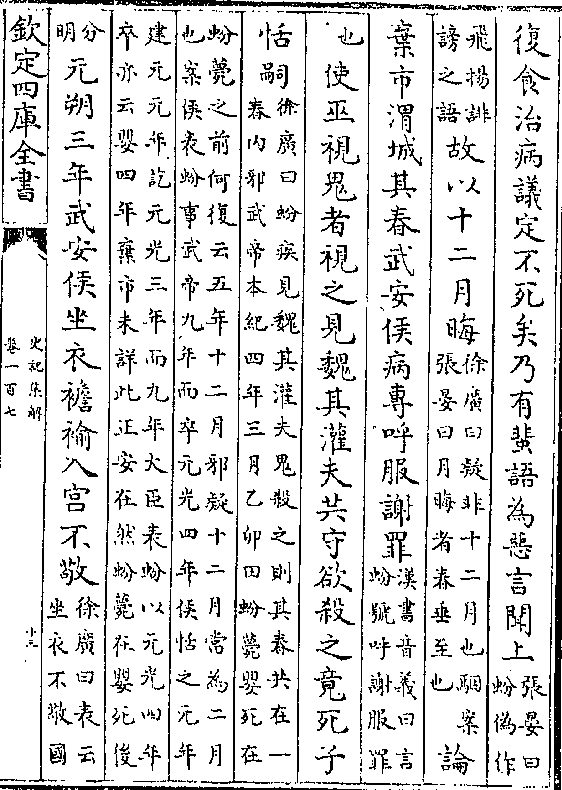 復食治病議定不死矣乃有蜚語為惡言聞上張晏曰蚡偽作
飛揚誹謗之語故以十二月晦徐廣曰疑非十二月也駰案張晏曰月晦者春垂至也論
棄市渭城其春武安侯病專呼服謝罪漢書音義曰言蚡號呼謝服罪
也使巫視鬼者視之見魏其灌夫共守欲殺之竟死子
恬嗣徐廣曰蚡疾見魏其灌夫鬼殺之則其春共在一春内邪武帝本紀四年三月乙卯田蚡薨嬰死在
蚡薨之前何復云五年十二月邪疑十二月當為二月也案侯表蚡事武帝九年而卒元光四年侯恬之元年
建元元年訖元光三年而九年大臣表蚡以元光四年卒亦云嬰四年棄市未詳此正安在然蚡薨在嬰死後
分明元朔三年武安侯坐衣襜褕入宫不敬徐廣曰表云坐衣不敬國
欽定四庫全書
史記集解
卷一百七
十三